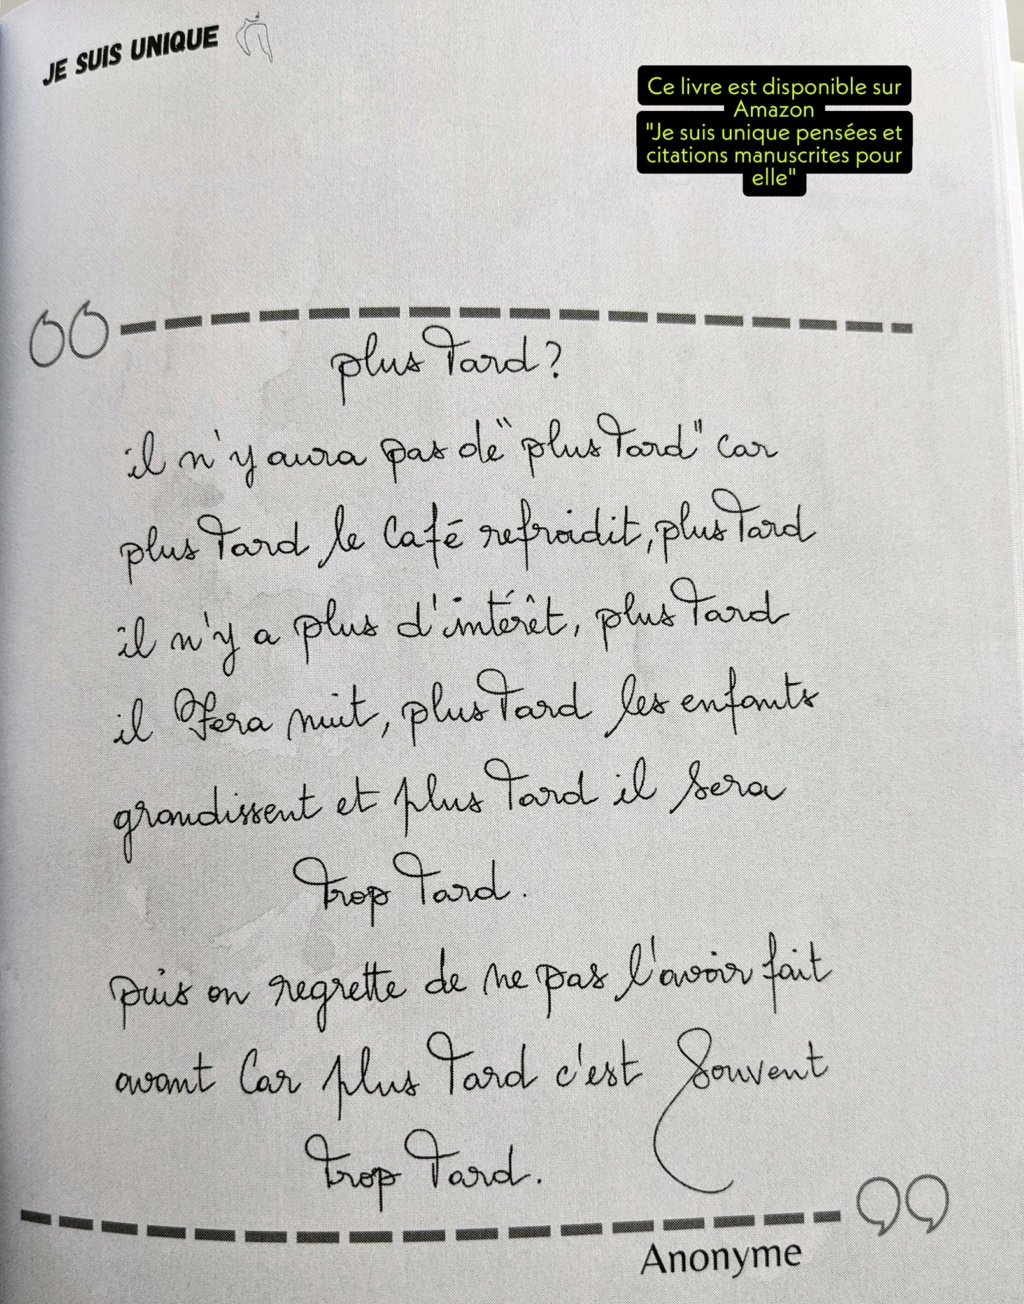 JE SUIS UNIQUE
Ce livre est disponible sur
Amazon
"Je suis unique pensées et
citations manuscrites pour
elle"
plus Tard?
il n'y aura pas de "plus Tard" car
plus Tard le Café refroidit, plus Tard
il n'y a plus d'intérêt, plus Tard
il Fera nuit, plus Tard les enfants
grandissent et plus Tard il sera
Trop Tard.
puis on regrette de ne pas l'avoir fait
avant Car plus Tard c'est Souvent
Trop Tard.
Anonyme